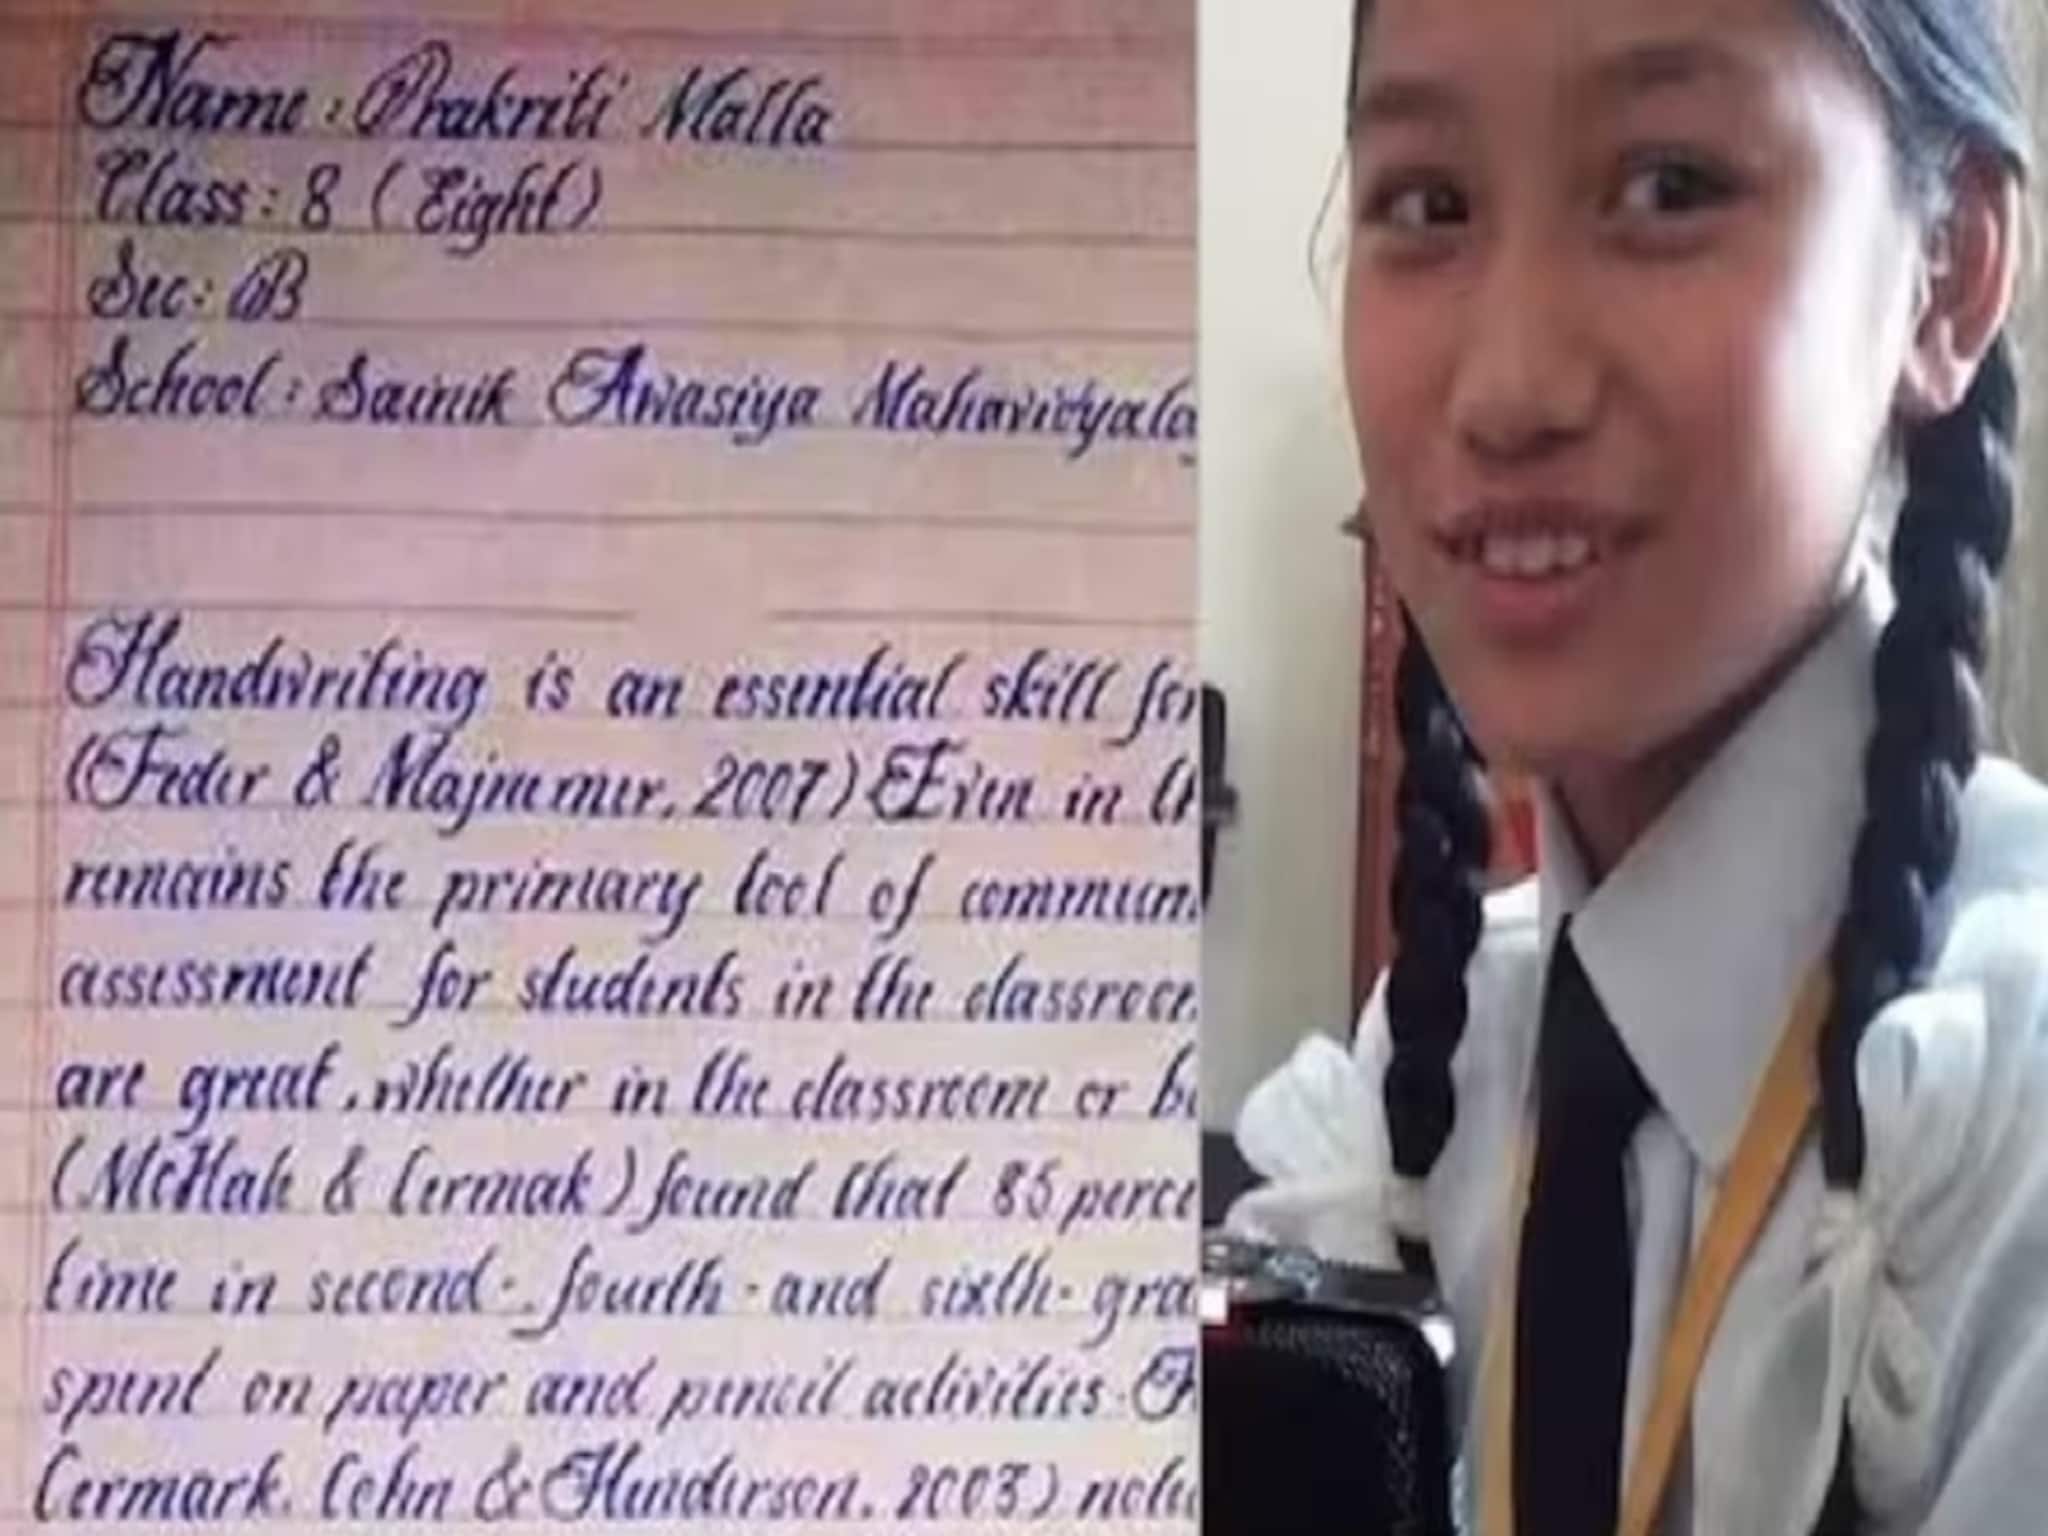 Name : Prakriti Malla
Class : 8 ( Eight )
Sec : B
School : Sainik Awasiya Mahavidyala
Handwriting is an essential skill for
(Feder & Majnemer, 2007) Even in th
remains the primary tool of commun
assessment for students in the classroo
are great, whether in the classroom or b
(McHale & Cermak) found that 85 perce
time in second-, fourth-and sixth-gra
spent on paper and pencil activities.
Cermark, Cohn & Henderson, 2003) note